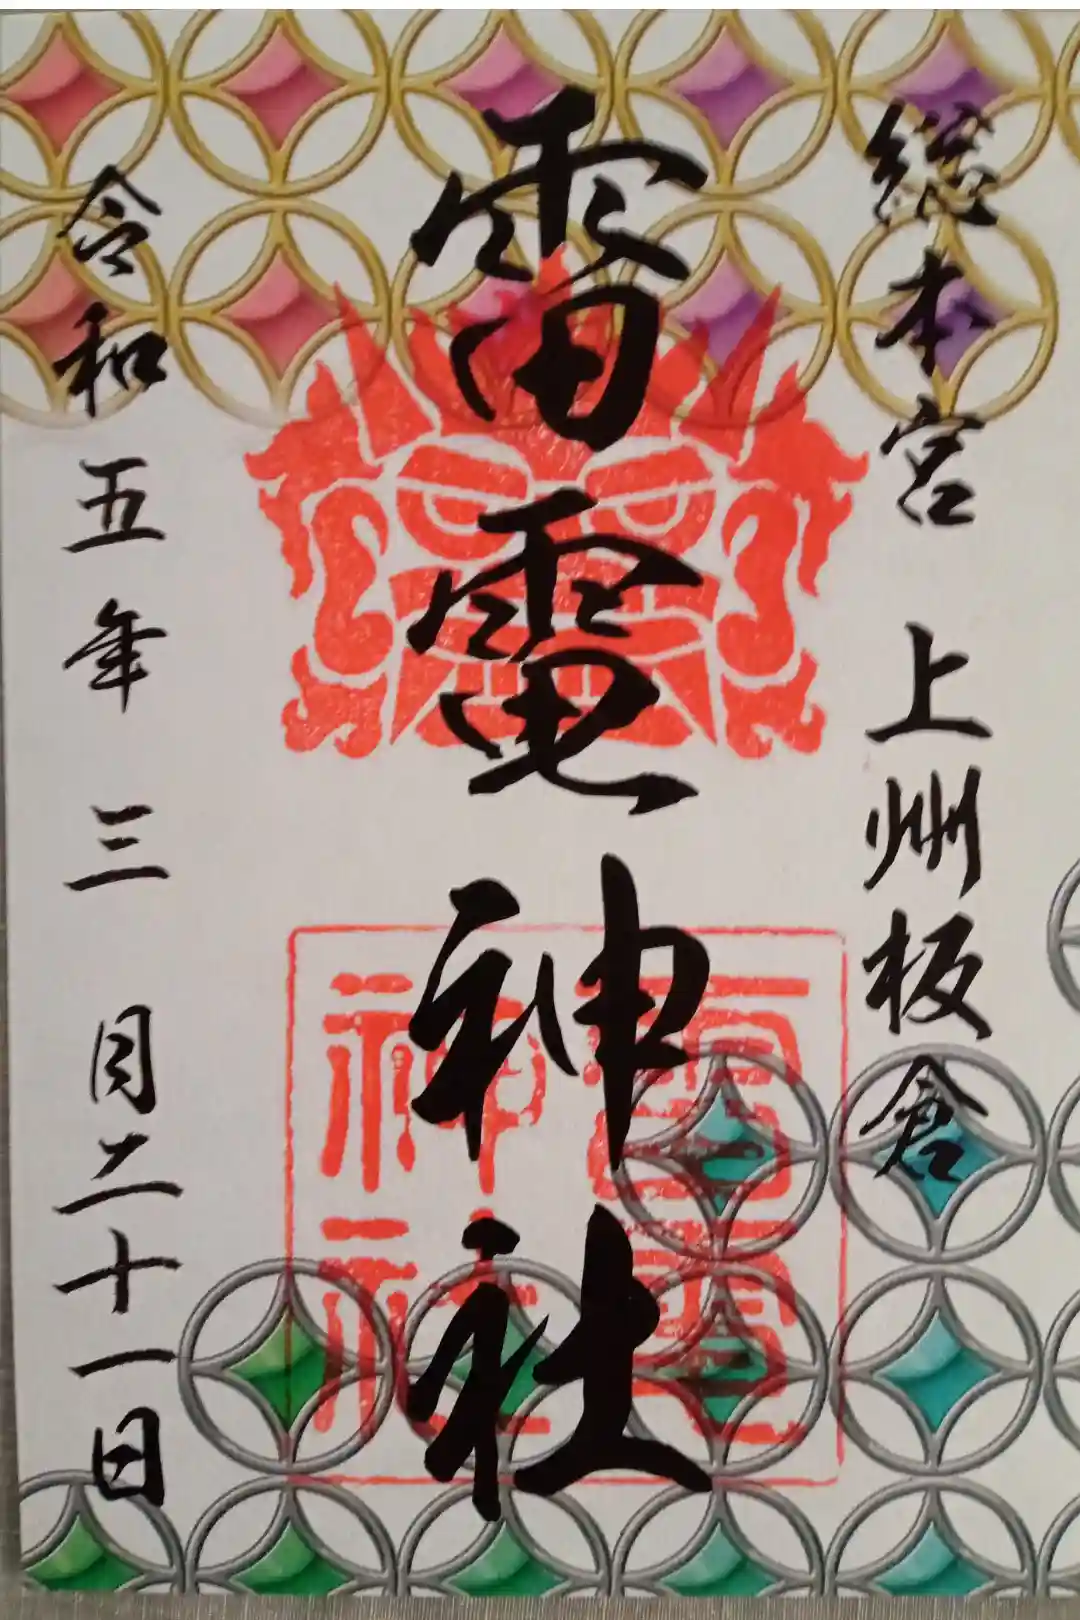 総本宮 上州板倉
雷電神社
雷電神社
令和五年三月二十一日